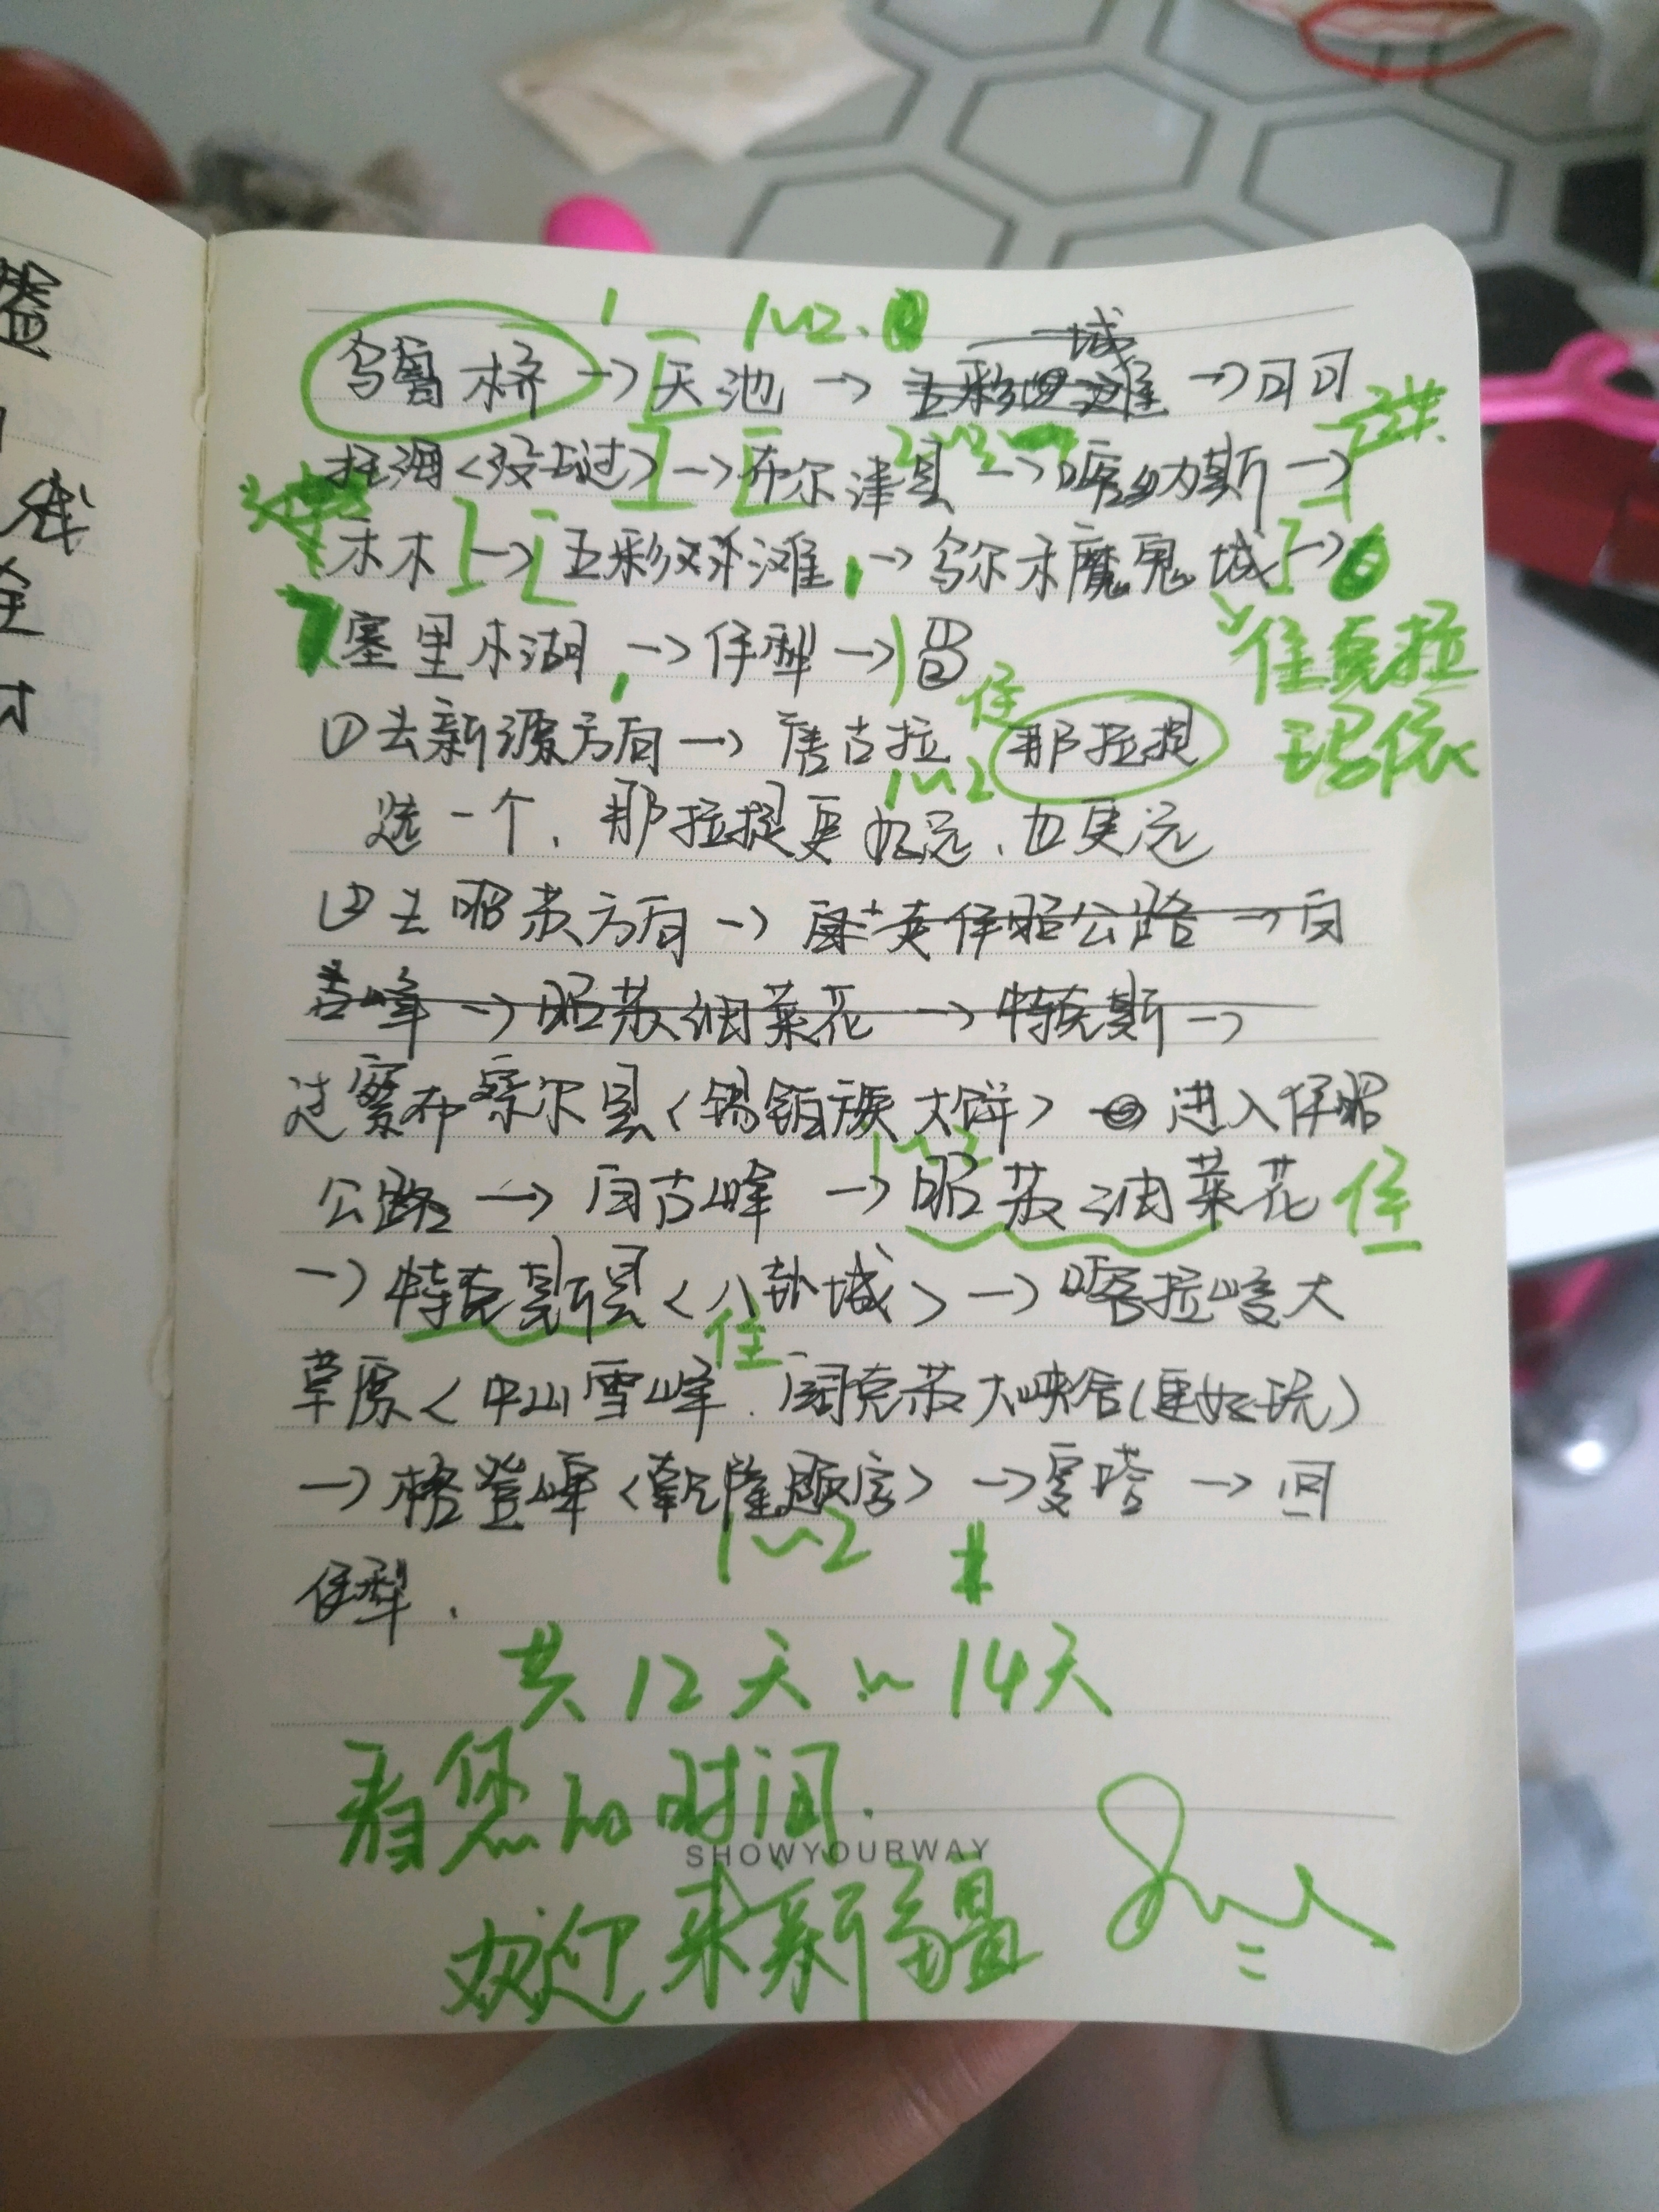 1 1~2.
乌鲁木齐→天池→五彩滩 城→可可
托海<没去过>→布尔津县→喀纳斯→
禾木→五彩滩→乌尔禾魔鬼城→
塞里木湖,→伊犁→
住克拉
玛依
①去新源方向→唐古拉 住 那拉提
1~2
选一个,那拉提更好远、也更远
②去昭苏方向→ 伊昭公路→白
峰→昭苏油菜花→特克斯→
过察布察尔县<锡伯族大饼> 进入伊昭
1~2
公路→白古峰→昭苏油菜花 住
→特克斯县<八卦城>→喀拉峻大
住
草原<中山雪峰.阔克苏大峡谷(更好玩)
→格登峰<乾隆题字>→夏塔→回
1~2
伊犁.
共12天~14天
看您的时间.
SHOWYOURWAY
欢迎来新疆